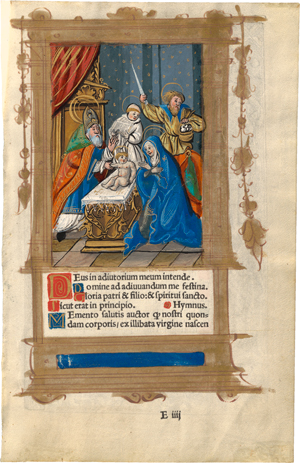 Deus in adiutorium meum intende.
Domine ad adiuuandum me festina.
Gloria patri & filio: & spiritui sancto.
Sicut erat in principio. Hymnus.
Memento salutis auctor qͥ nostri quon-
dam corporis; ex illibata virgine nascen
E iiij